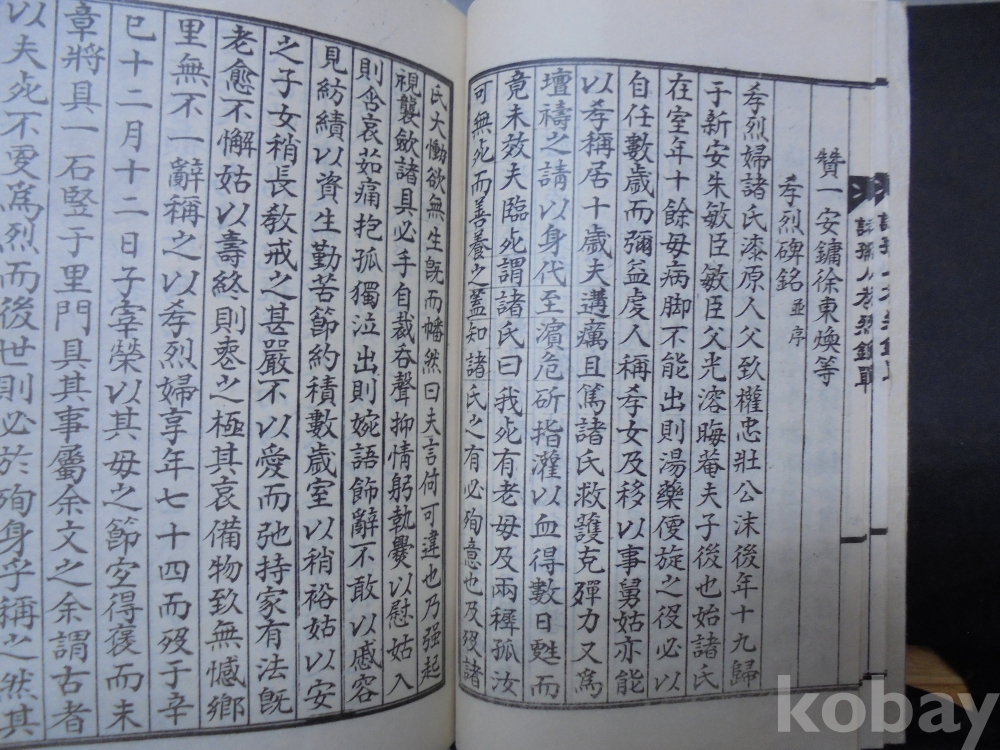 贊一 安鏞徐東煥等
孝烈碑銘 並序
孝烈婦諸氏漆原人父致權忠壯公沫後年十九歸
于新安朱敏臣敏臣父光溶晦菴夫子後也始諸氏
在室年十餘母病脚不能出則湯藥便旋之役必以
自任數歲而彌益虔人稱孝女及移以事舅姑亦能
以孝稱居十歲夫遘癘且篤諸氏救護克殫力又爲
壇禱之請以身代至濱危斫指灌以血得數日甦而
竟未效夫臨死謂諸氏曰我死有老母及兩穉孤汝
可無死而善養之蓋知諸氏之有必殉意也及歿諸
氏大慟欲無生旣而幡然曰夫言何可違也乃强起
視襲斂諸具必手自裁呑聲抑情躬執爨以慰姑入
則含哀茹痛抱孤獨泣出則婉語飾辭不敢以慼容
見紡績以資生勤苦節約積數歲室以稍裕姑以安
之子女稍長敎戒之甚嚴不以愛而弛持家有法旣
老愈不懈姑以壽終則喪之極其哀備物致無憾鄕
里無不一辭稱之以孝烈婦享年七十四而歿于辛
巳十二月十二日子宰榮以其母之節宜得褒而未
章將具一石竪于里門具其事屬余文之余謂古者
以夫死不更爲烈而後世則必於殉身乎稱之然其